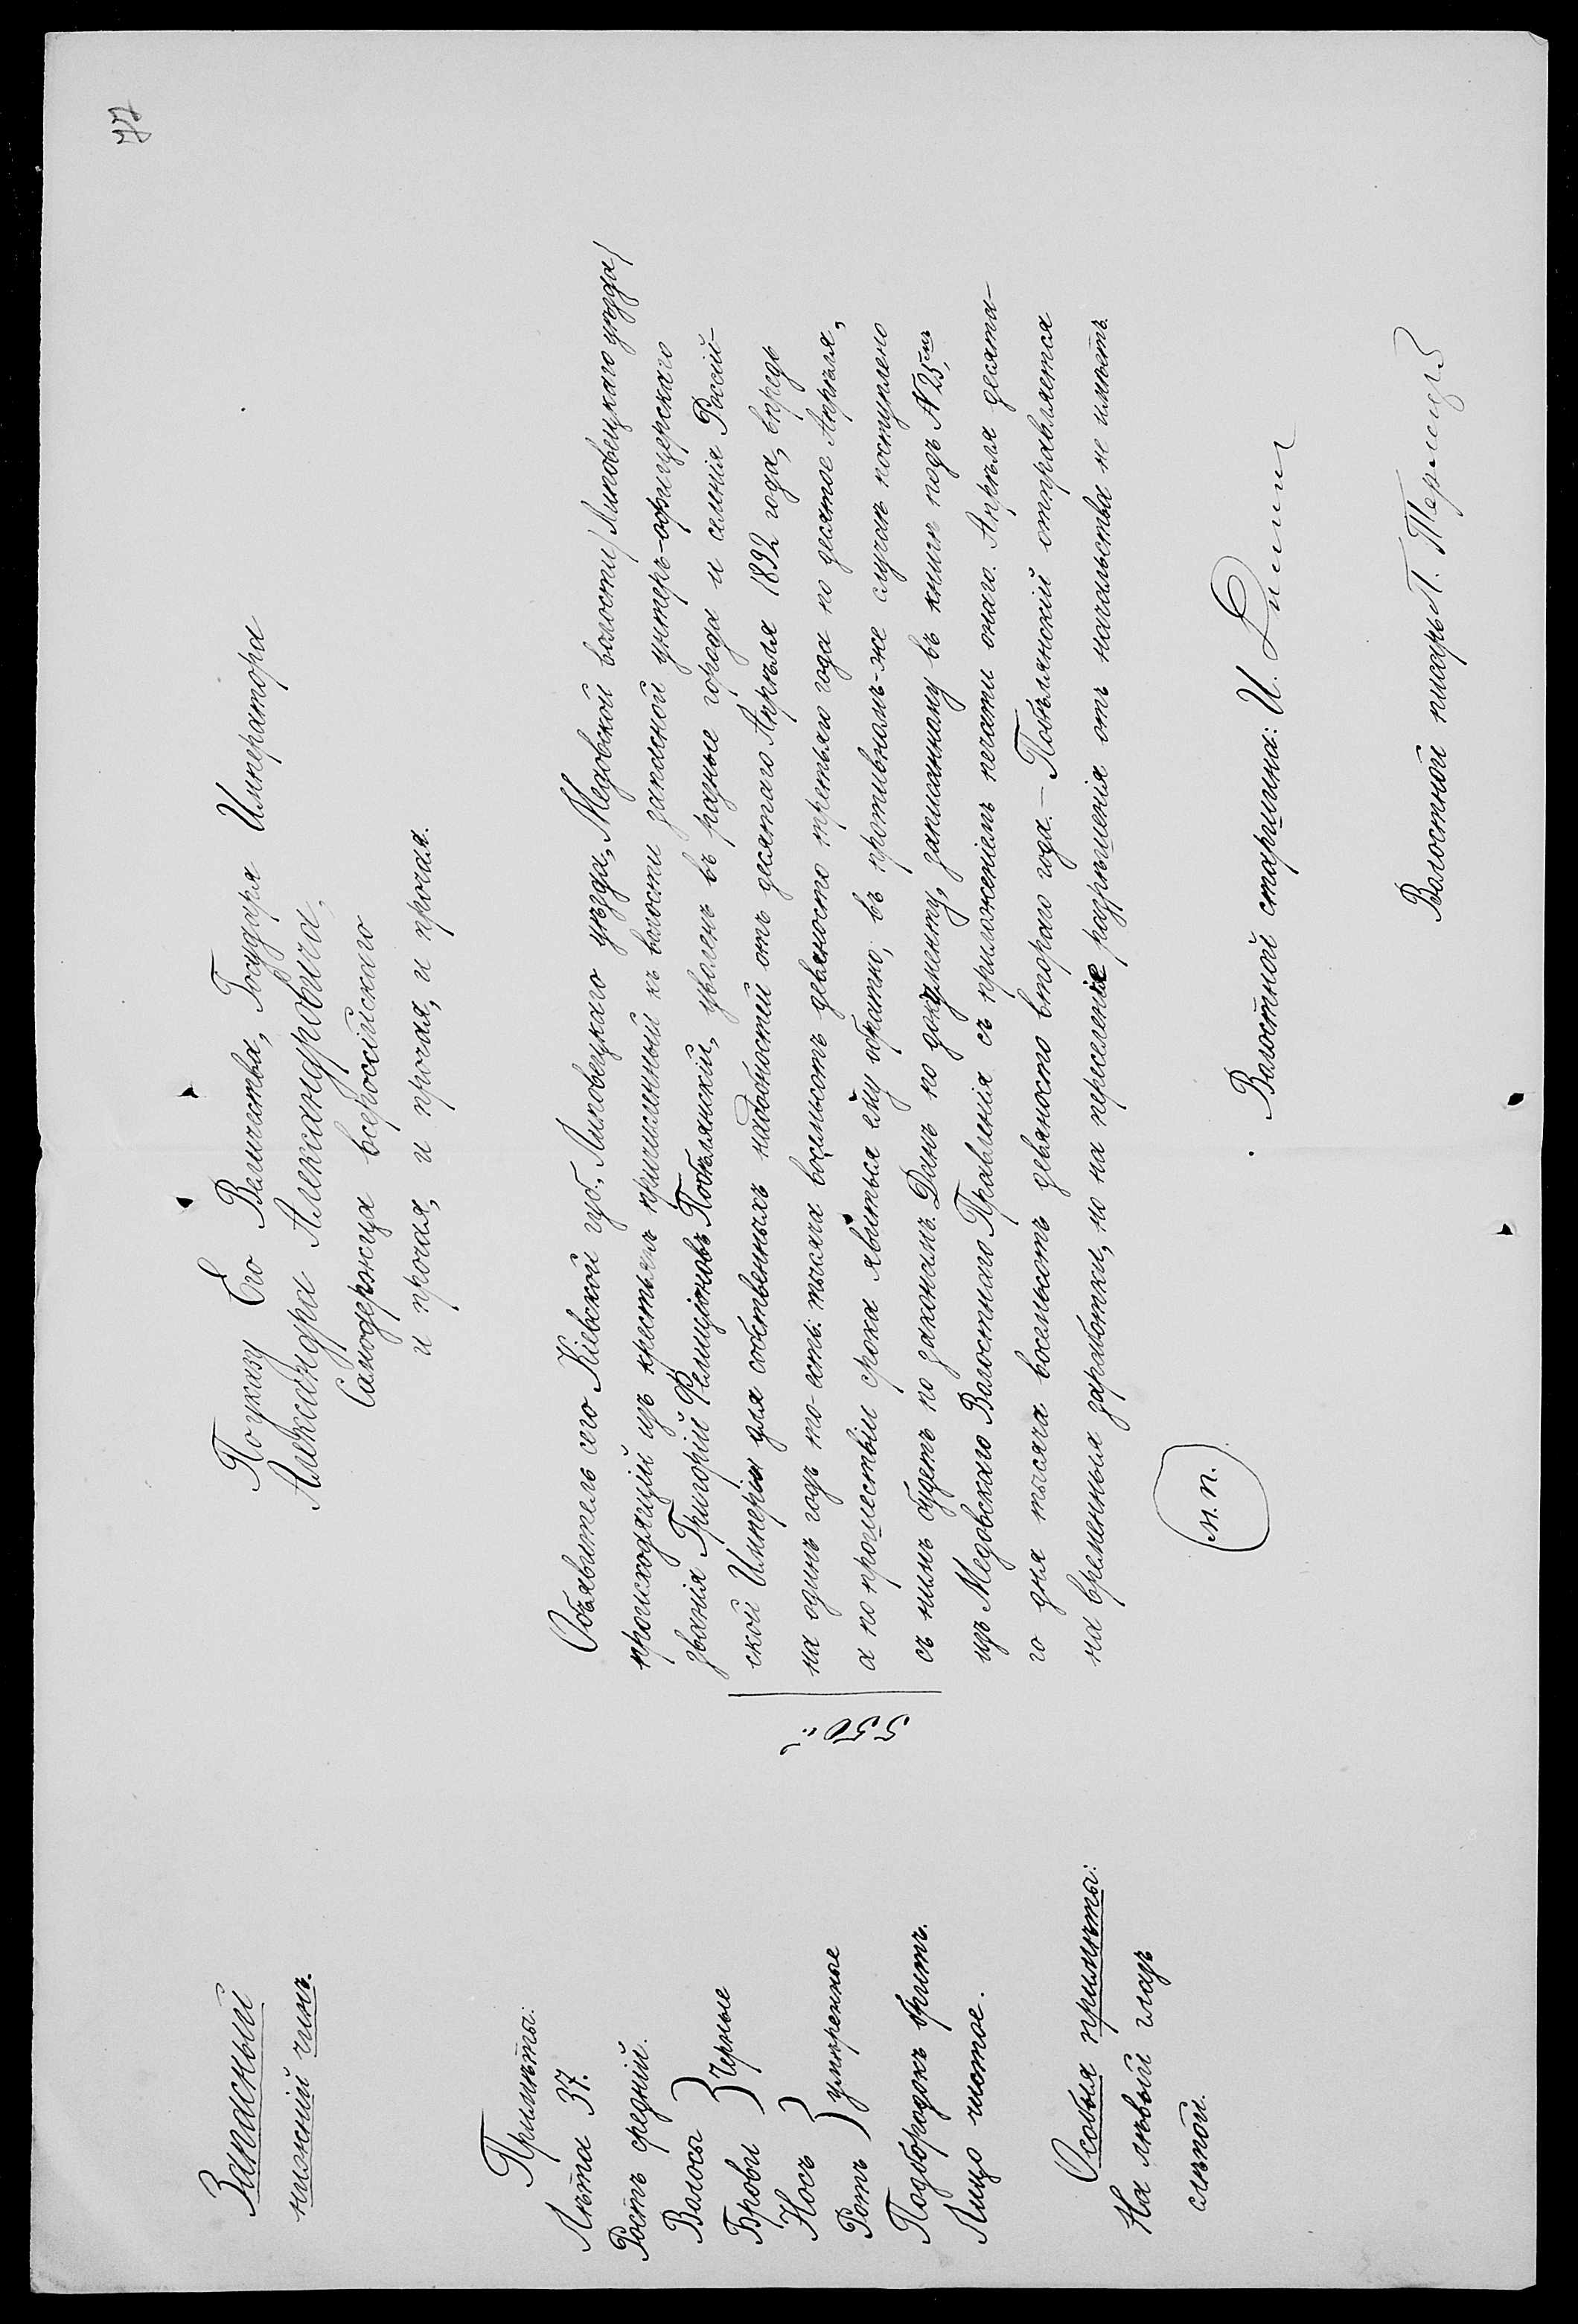 77
Запасный
нижній чинъ.
По указу Его Величества, Государя Императора
Александра Александровича,
Самодержца всероссійскаго
и прочая, и прочая, и прочая.
Примѣты:
Лѣта 37.
Ростъ средній.
Волосы } черные
Брови
Носъ } умѣренные
Ротъ
Подбородокъ бритъ.
Лицо чистое.
Особыя примѣты:
На лѣвый глазъ
слѣпой.
550
Объявитель сего Кіевской губ., Липовецкаго уѣзда, Медовской волости /Липовецкаго уѣзда/
происходящій изъ крестьянъ причисленный къ волости запасной унтеръ-офицерскаго
званія Григорій Фелиціоновъ Побѣлянскій, уволенъ въ разные города и селенія Россій-
ской Имперіи для собственныхъ надобностей отъ десятаго Апрѣля 1892 года, впредь
на одинъ годъ то-есть: тысяча восемьсотъ девяносто третьяго года по десятое Апрѣля,
а по прошествіи срока явиться ему обратно; въ противномъ-же случаѣ поступлено
съ нимъ будетъ по законамъ. Данъ по документу, записанному въ книгѣ подъ N 25мъ,
изъ Медовскаго Волостнаго Правленія съ приложеніемъ печати онаго. Апрѣля десята-
го дня тысяча восемьсотъ девяносто втораго года. — Побѣлянскій отправляется
на временныя заработки, но на переселеніе разрѣшенія отъ начальства не имѣетъ.
(м.п.)
Волостной старшина: И.
Волостной писарь П.